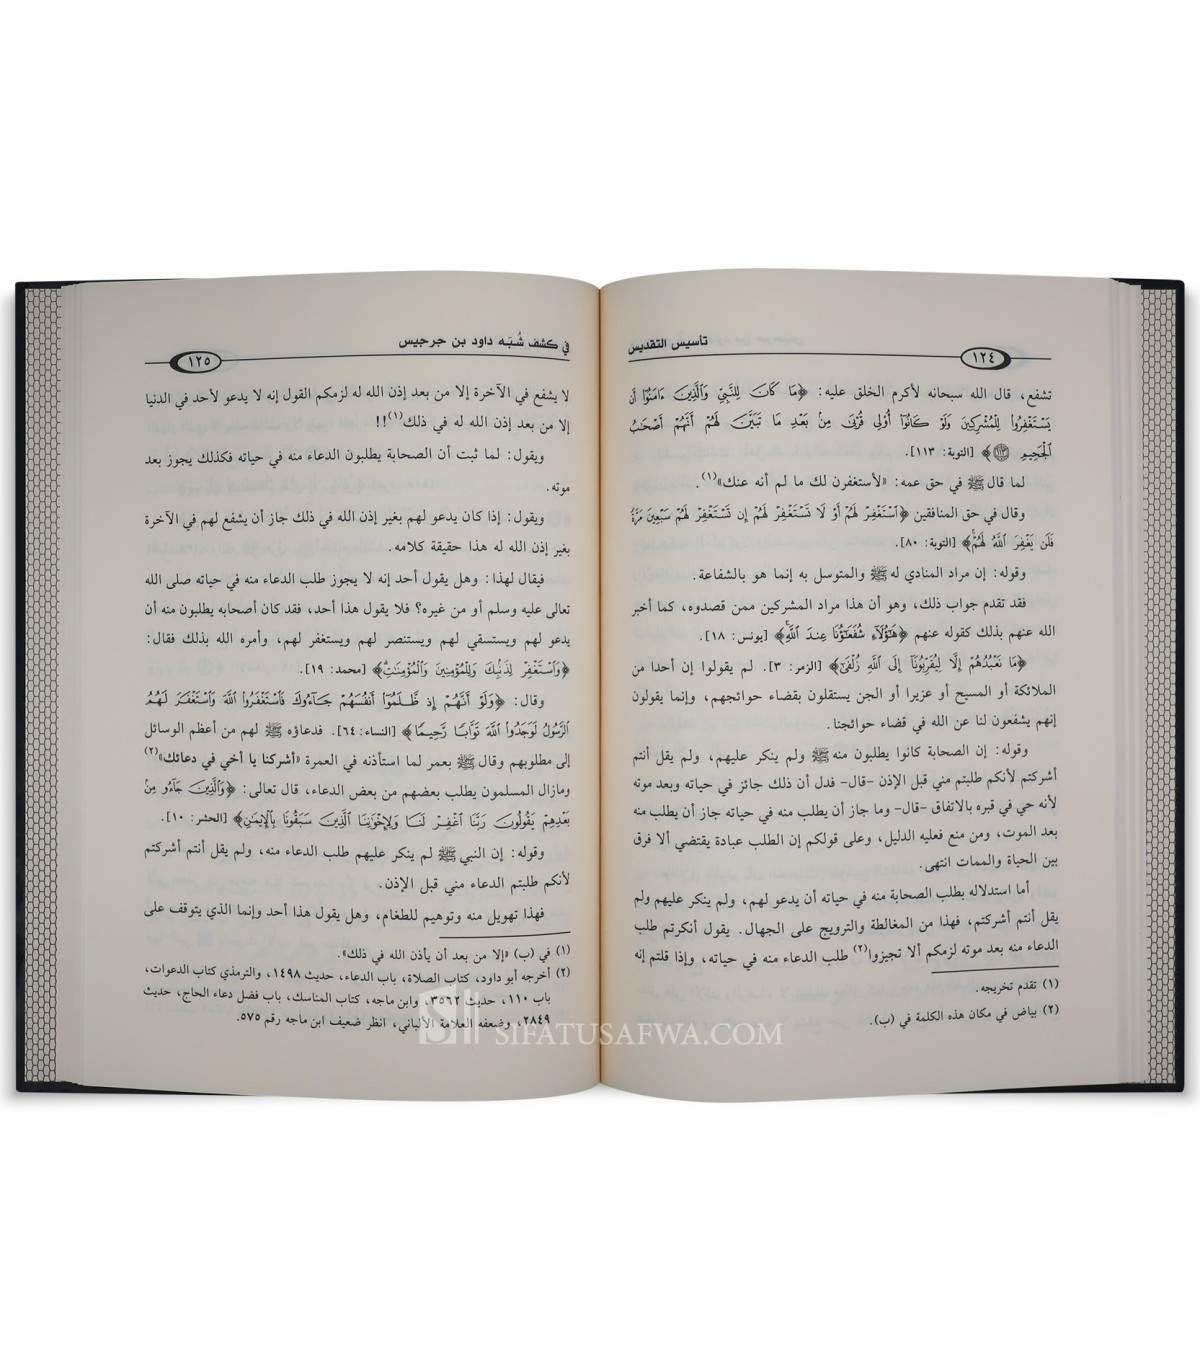 تأسيس التقديس
١٢٤
تشفع، قال الله سبحانه لأكرم الخلق عليه: ﴿مَا كَانَ لِلنَّبِيِّ وَالَّذِينَ ءَامَنُوٓا أَن
يَسْتَغْفِرُوا لِلْمُشْرِكِينَ وَلَوْ كَانُوٓا أُوْلِي قُرْبَىٰ مِنۢ بَعْدِ مَا تَبَيَّنَ لَهُمْ أَنَّهُمْ أَصْحَٰبُ
الْجَحِيمِ ﴿١١٣﴾﴾ [التوبة: ١١٣].
لما قال ﷺ في حق عمه: «لأستغفرن لك ما لم أنه عنك»(١).
وقال في حق المنافقين ﴿اسْتَغْفِرْ لَهُمْ أَوْ لَا تَسْتَغْفِرْ لَهُمْ إِن تَسْتَغْفِرْ لَهُمْ سَبْعِينَ مَرَّةً
فَلَن يَغْفِرَ اللَّهُ لَهُمْ﴾ [التوبة: ٨٠].
وقوله: إن مراد المنادي له ﷺ والمتوسل به إنما هو بالشفاعة.
فقد تقدم جواب ذلك، وهو أن هذا مراد المشركين ممن قصدوه، كما أخبر
الله عنهم بذلك كقوله عنهم ﴿هَٰٓؤُلَآءِ شُفَعَٰٓؤُنَا عِندَ اللَّهِ﴾ [يونس: ١٨].
﴿مَا نَعْبُدُهُمْ إِلَّا لِيُقَرِّبُونَآ إِلَى اللَّهِ زُلْفَىٰٓ﴾ [الزمر: ٣]. لم يقولوا إن أحدا من
الملائكة أو المسيح أو عزيرا أو الجن يستقلون بقضاء حوائجهم، وإنما يقولون
إنهم يشفعون لنا عن الله في قضاء حوائجنا.
وقوله: إن الصحابة كانوا يطلبون منه ﷺ ولم ينكر عليهم، ولم يقل أنتم
أشركتم لأنكم طلبتم مني قبل الإذن -قال- فدل أن ذلك جائز في حياته وبعد موته
لأنه حي في قبره بالاتفاق -قال- وما جاز أن يطلب منه في حياته جاز أن يطلب منه
بعد الموت، ومن منع فعليه الدليل، وعلى قولكم إن الطلب عبادة يقتضي ألا فرق
بين الحياة والممات انتهى.
أما استدلاله بطلب الصحابة منه في حياته أن يدعو لهم، ولم ينكر عليهم ولم
يقل أنتم أشركتم، فهذا من المغالطة والترويج على الجهال. يقول أنكرتم طلب
الدعاء منه بعد موته لزمكم ألا تجيزوا(٢) طلب الدعاء منه في حياته، وإذا قلتم إنه
(١) تقدم تخريجه.
(٢) بياض في مكان هذه الكلمة في (ب).
في كشف شُبَه داود بن جرجيس
١٢٥
لا يشفع في الآخرة إلا من بعد إذن الله له لزمكم القول إنه لا يدعو لأحد في الدنيا
إلا من بعد إذن الله له في ذلك(١)!!
ويقول: لما ثبت أن الصحابة يطلبون الدعاء منه في حياته فكذلك يجوز بعد
موته.
ويقول: إذا كان يدعو لهم بغير إذن الله في ذلك جاز أن يشفع لهم في الآخرة
بغير إذن الله له هذا حقيقة كلامه.
فيقال لهذا: وهل يقول أحد إنه لا يجوز طلب الدعاء منه في حياته صلى الله
تعالى عليه وسلم أو من غيره؟ فلا يقول هذا أحد، فقد كان أصحابه يطلبون منه أن
يدعو لهم ويستسقي لهم ويستنصر لهم ويستغفر لهم، وأمره الله بذلك فقال:
﴿وَاسْتَغْفِرْ لِذَنۢبِكَ وَلِلْمُؤْمِنِينَ وَالْمُؤْمِنَٰتِ﴾ [محمد: ١٩].
وقال: ﴿وَلَوْ أَنَّهُمْ إِذ ظَّلَمُوٓا أَنفُسَهُمْ جَآءُوكَ فَاسْتَغْفَرُوا اللَّهَ وَاسْتَغْفَرَ لَهُمُ
الرَّسُولُ لَوَجَدُوا اللَّهَ تَوَّابًا رَّحِيمًا﴾ [النساء: ٦٤]. فدعاؤه ﷺ لهم من أعظم الوسائل
إلى مطلوبهم وقال ﷺ بعمر لما استأذنه في العمرة «أشركنا يا أخي في دعائك»(٢)
ومازال المسلمون يطلب بعضهم من بعض الدعاء، قال تعالى: ﴿وَالَّذِينَ جَآءُو مِنۢ
بَعْدِهِمْ يَقُولُونَ رَبَّنَا اغْفِرْ لَنَا وَلِإِخْوَٰنِنَا الَّذِينَ سَبَقُونَا بِالْإِيمَٰنِ﴾ [الحشر: ١٠].
وقوله: إن النبي ﷺ لم ينكر عليهم طلب الدعاء منه، ولم يقل أنتم أشركتم
لأنكم طلبتم الدعاء مني قبل الإذن.
فهذا تهويل منه وتوهيم للطغام، وهل يقول هذا أحد وإنما الذي يتوقف على
(١) في (ب) «إلا من بعد أن يأذن الله في ذلك».
(٢) أخرجه أبو داود، كتاب الصلاة، باب الدعاء، حديث ١٤٩٨، والترمذي كتاب الدعوات،
باب ١١٠، حديث ٣٥٦٢، وابن ماجه، كتاب المناسك، باب فضل دعاء الحاج، حديث
٢٨٤٩، وضعفه العلامة الألباني، انظر ضعيف ابن ماجه رقم ٥٧٥.
SIFATUSAFWA.COM